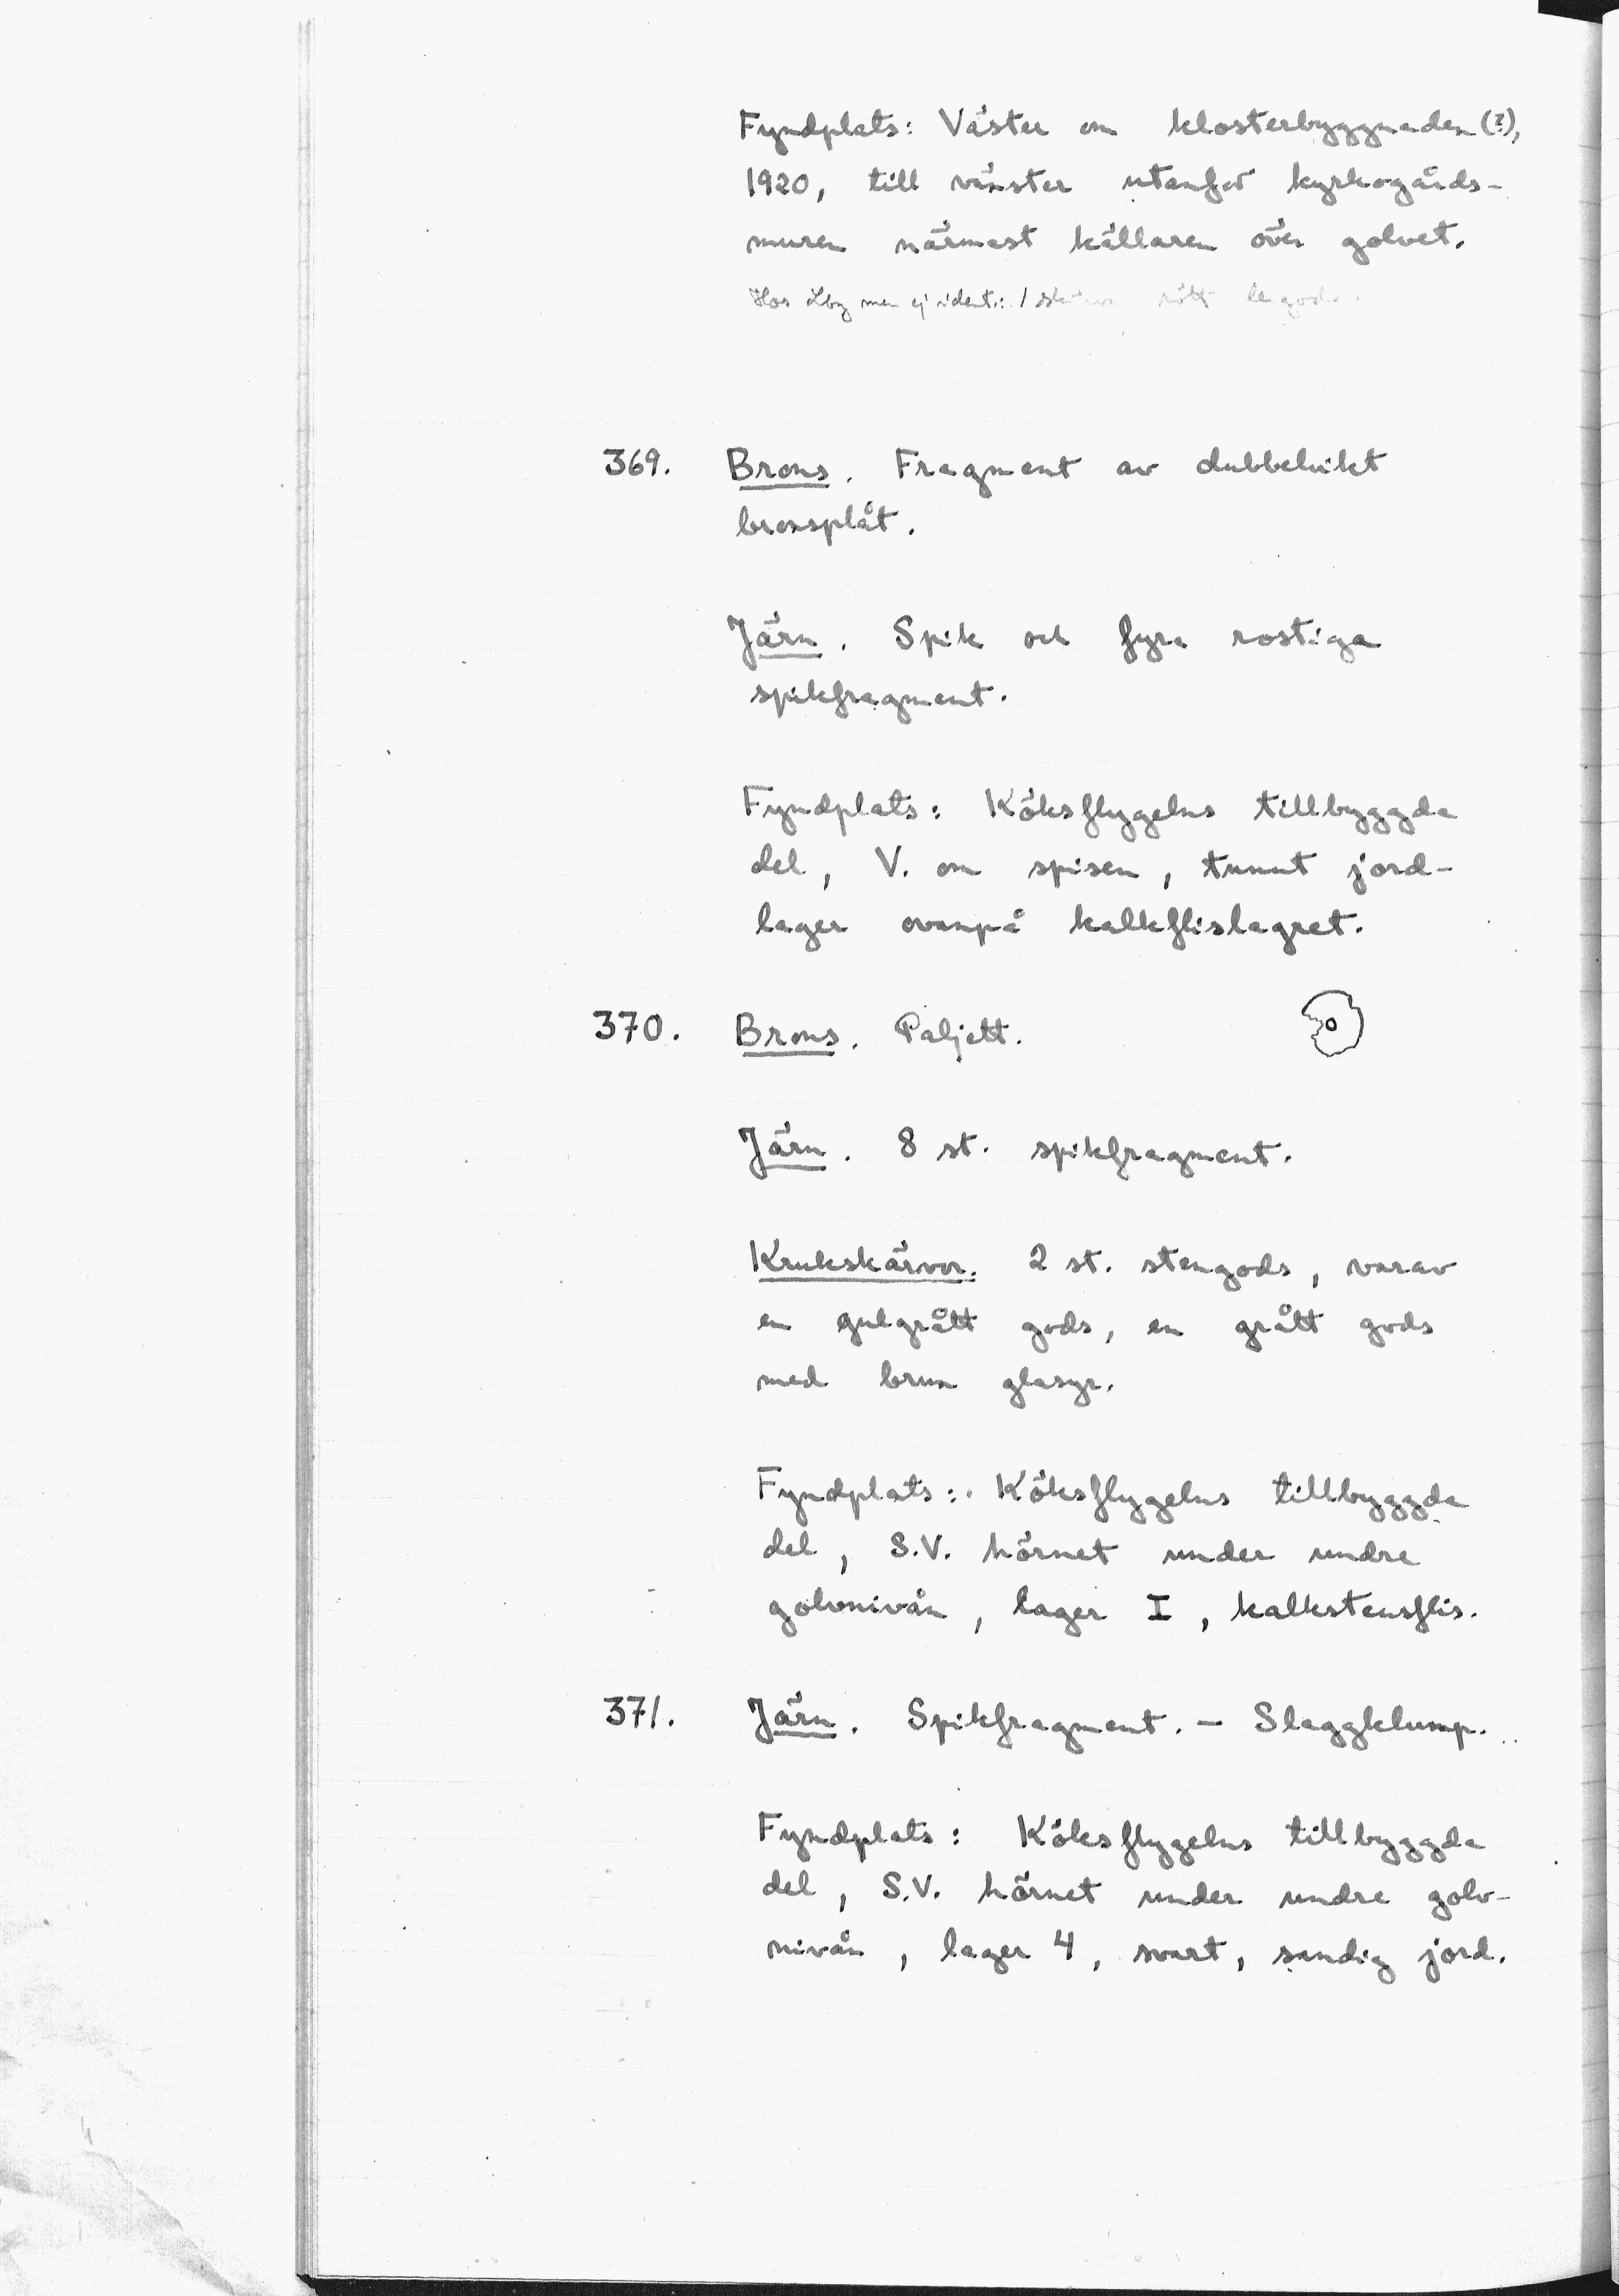 Fyndplats: Väster om klosterbyggnaden (?),
1920, till vänster utanför kyrkogårds-
muren närmast källaren över golvet.
Hos Lbg men ej ident.: 1 skärva rött lergods.
369. Brons. Fragment av dubbelvikt
bronsplåt.
Järn. Spik och fyra rostiga
spikfragment.
Fyndplats: Köksflygelns tillbyggda
del, V. om spisen, tunnt jord-
lager ovanpå kalkflislagret.
370. Brons. Paljett.
Järn. 8 st. spikfragment.
Krukskärvor. 2 st. stengods, varav
en gulgrått gods, en grått gods
med brun glasyr.
Fyndplats: Köksflygelns tillbyggda
del, S.V. hörnet under undre
golvnivån, lager I, kalkstensflis.
371. Järn. Spikfragment. - Slaggklump.
Fyndplats: Köksflygelns tillbyggda
del, S.V. hörnet under undre golv-
nivån, lager 4, svart, sandig jord.